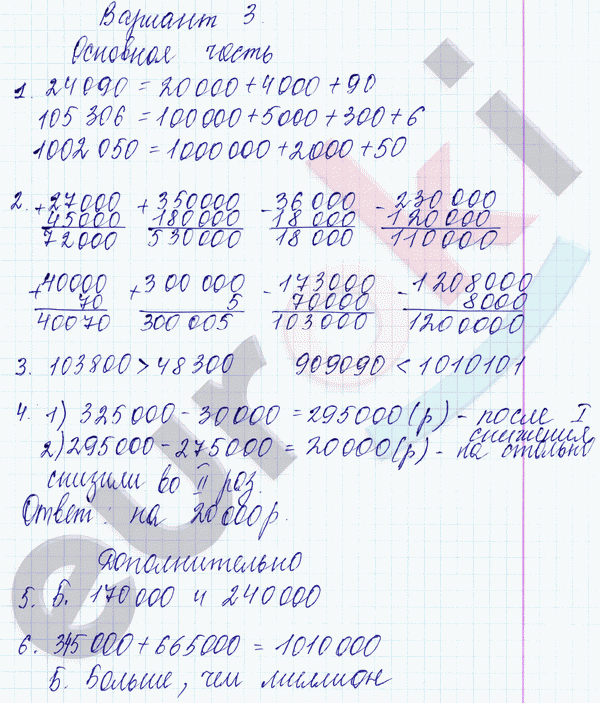 Вариант 3.
Основная часть
1. 24090 = 20000 + 4000 + 90
105 306 = 100000 + 5000 + 300 + 6
1002 050 = 1000 000 + 2000 + 50
2. + 27000 + 350000 - 36 000 - 230 000
45000 180000 18 000 120 000
72000 530 000 18 000 110 000
+ 40000 + 300 000 - 173000 - 1208000
70 5 70000 8000
40070 300 005 103 000 1200000
3. 103800 > 48 300 909090 < 1010101
4. 1) 325 000 - 30 000 = 295000 (р) - после I снижения
2) 295000 - 275000 = 20000 (р) - на столько
снизили во II раз.
Ответ: на 20000р.
Дополнительно
5. Б. 170000 и 240000
6. 345 000 + 665000 = 1010000
Б. Больше, чем миллион
euroki